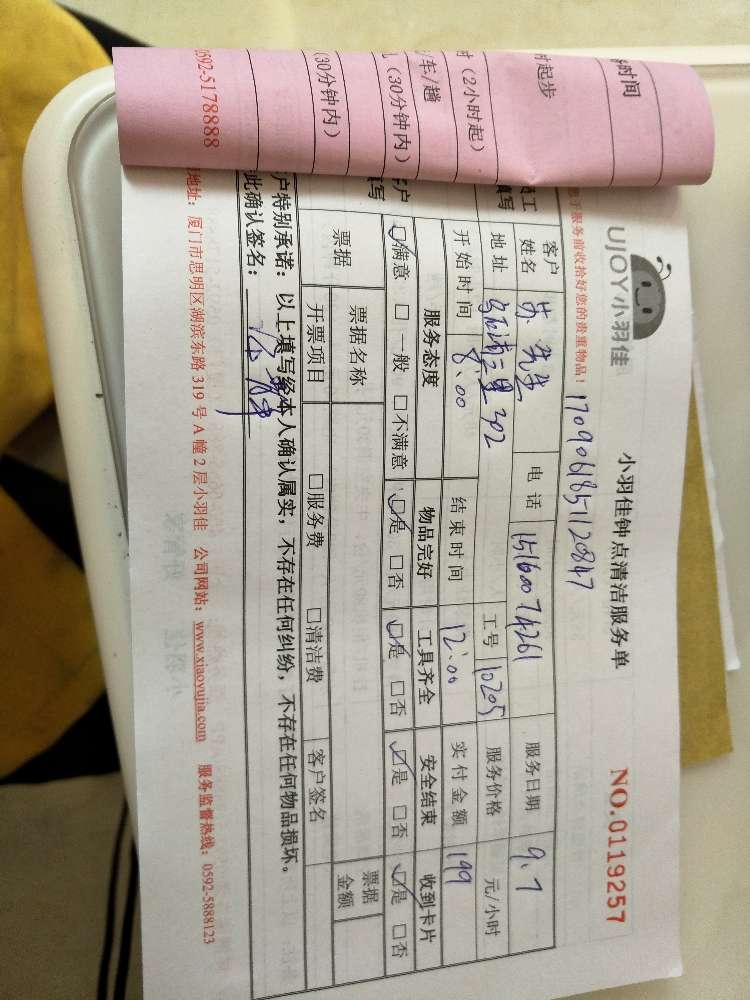 UJOY小羽佳
小羽佳钟点清洁服务单
NO.0119257
手服务前收拾好您的贵重物品！
1709061851120847
客户姓名 苏先生 电话 15160074261 服务日期 9.7
地址 三里302 工号 10205 服务价格 元/小时
开始时间 8:00 结束时间 12:00 实付金额 199
服务态度 物品完好 工具齐全 安全结束 收到卡片
☑满意 □一般 □不满意 ☑是 □否 ☑是 □否 ☑是 □否 ☑是 □否
票据 票据名称 票据金额
开票项目 □服务费 □清洁费 客户签名
户特别承诺：以上填写经本人确认属实，不存在任何纠纷，不存在任何物品损坏。
此确认签名：
地址：厦门市思明区湖滨东路319号A幢2层小羽佳 公司网站：www.xiaoyujia.com 服务监督热线：0592-5888123
时间
时起步
时（2小时起）
/车/趟
（30分钟内）
（30分钟内）
0592-5178888